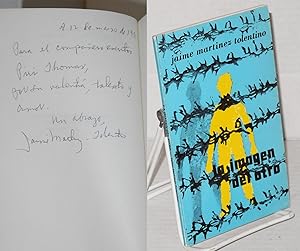 A 12 de marzo de
Para el compañero escritor
Piri Thomas,
talento y
amor.
Un abrazo,
Jaime Martínez Tolentino
jaime martínez tolentino
la imagen
del otro